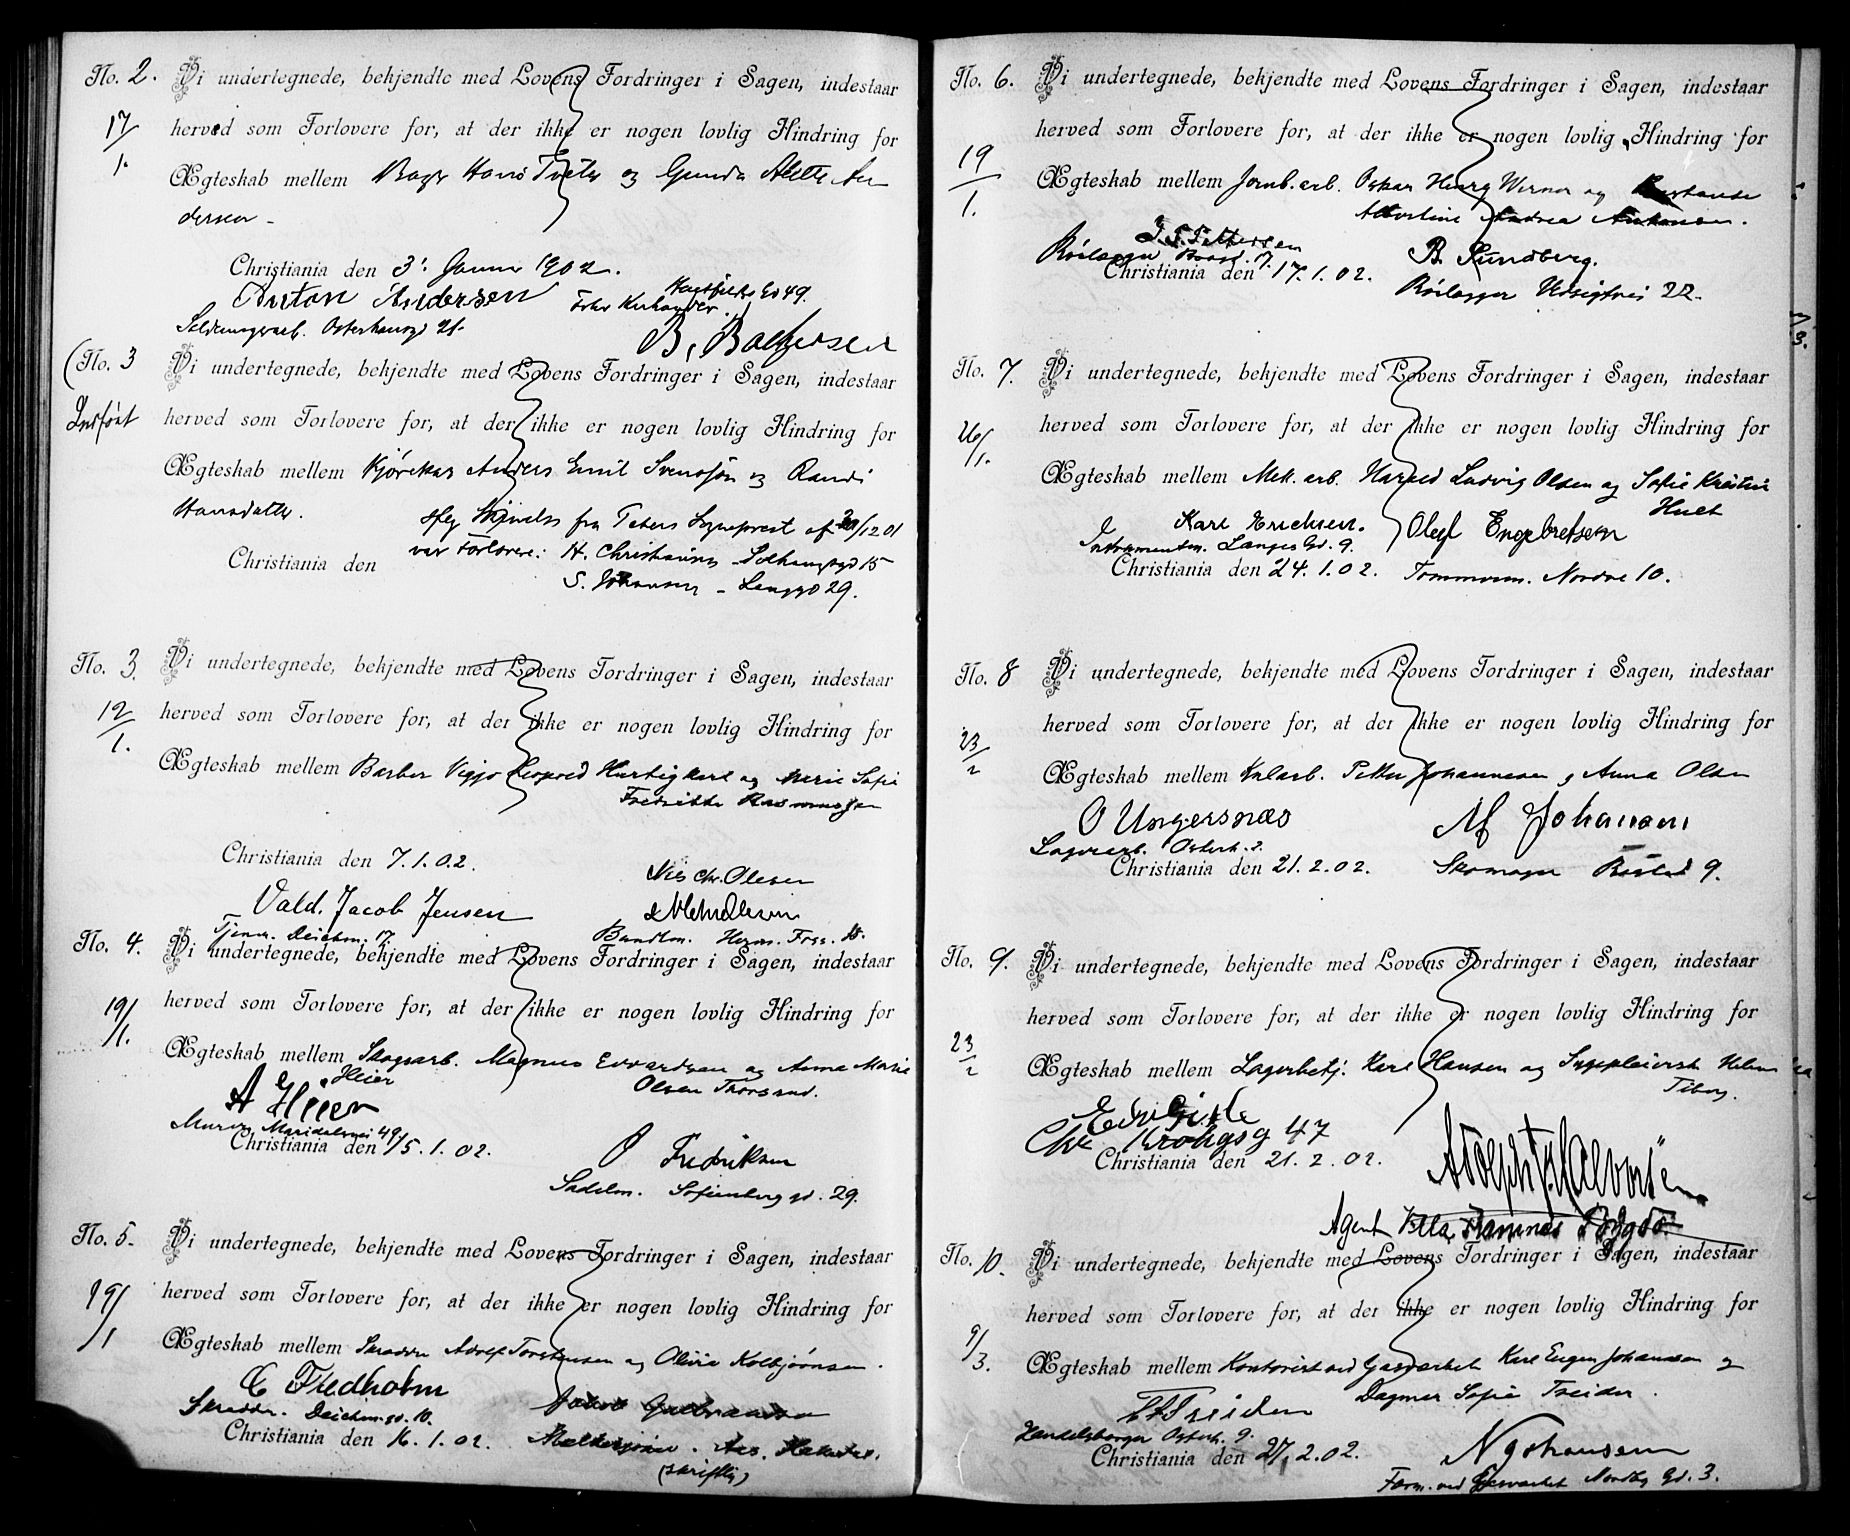 No. 2. Vi undertegnede, bekjendte med Lovens Fordringer i Sagen, indestaar
17/1. herved som Forlovere for, at der ikke er nogen lovlig Hindring for
Ægteskab mellem Bager Hans Tveter og Gunda Alette An
dersen -
Christiania den 3. Januar 1902.
Anton Andersen
49.
Osterhausgd 21.
(No. 3 Vi undertegnede, bekjendte med Lovens Fordringer i Sagen, indestaar
Indført herved som Forlovere for, at der ikke er nogen lovlig Hindring for
Ægteskab mellem Kjørekar Anders Emil Svensson og Randi
Hansdatter.
fra Sogneprest af /12 01
var Forlovere: H. Christiansen 15
Christiania den
S. Johansen - 29.
No. 3. Vi undertegnede, bekjendte med Lovens Fordringer i Sagen, indestaar
12/1. herved som Forlovere for, at der ikke er nogen lovlig Hindring for
Ægteskab mellem Barber Viggo Leopold Hurtigkarl og Marie Sofie
Fredrikke Rasmussen
Christiania den 7.1.02.
Nils Chr. Olesen
Vald. Jacob Jensen
Tjener. Deichm. 17. Bundtm. Herm. Foss.
No. 4. Vi undertegnede, bekjendte med Lovens Fordringer i Sagen, indestaar
19/1. herved som Forlovere for, at der ikke er nogen lovlig Hindring for
Ægteskab mellem Skogsarb. Magnus Edvardsen og Anna Marie
Heier Olsen Thorsrud.
A Heier
Murer Maridalsvei 49
Christiania den 15.1.02.
O Fredriksen
Sadelm. Sofienberg gd. 29.
No. 5. Vi undertegnede, bekjendte med Lovens Fordringer i Sagen, indestaar
19/1 herved som Forlovere for, at der ikke er nogen lovlig Hindring for
Ægteskab mellem Skrædder Adolf Torstensen og Olivia Kolbjørnsen.
C Fredholm Gulbransen
Skrædder. Deichm. gd. 10.
Christiania den 16.1.02.
(skriftlig)
No. 6. Vi undertegnede, bekjendte med Lovens Fordringer i Sagen, indestaar
19/1. herved som Forlovere for, at der ikke er nogen lovlig Hindring for
Ægteskab mellem Jernb. arb. Oskar Henry Werner og
Albertine Andrea
Pettersen B. Sundberg.
Rørlægger
Christiania den 17.1.02.
Rørlægger Udsigtvei 22.
No. 7. Vi undertegnede, bekjendte med Lovens Fordringer i Sagen, indestaar
26/1. herved som Forlovere for, at der ikke er nogen lovlig Hindring for
Ægteskab mellem Mek. arb. Harald Ludvig Olsen og Sofie Kristine
Hult
Karl Erichsen. Olaf Engebretsen
Instrumentm. Langes Gd. 9.
Christiania den 24.1.02. Tømmerm. Nordre 10.
No. 8 Vi undertegnede, bekjendte med Lovens Fordringer i Sagen, indestaar
23/2 herved som Forlovere for, at der ikke er nogen lovlig Hindring for
Ægteskab mellem Petter Johannesen og Anna Olsen
O Ungersnæs M Johansen
Lagerarb. Osterh. 2.
Christiania den 21.2.02. Skomager 9.
No. 9. Vi undertegnede, bekjendte med Lovens Fordringer i Sagen, indestaar
23/2 herved som Forlovere for, at der ikke er nogen lovlig Hindring for
Ægteskab mellem Lagerbetj. Karl Hansen og Sygepleierske
Krohgsg 47
Christiania den 21.2.02.
Adolph Halvorsen
Agent
No. 10. Vi undertegnede, bekjendte med Lovens Fordringer i Sagen, indestaar
9/3. herved som Forlovere for, at der ikke er nogen lovlig Hindring for
Ægteskab mellem Kontorist ved Gasværket Karl Eugen Johansen og
Dagmar Sofie Treider.
Treider
Handelsborger Osterh. 9.
Christiania den 27.2.02. N Johansen
Form. ved Gasværket Nordby Gd. 3.